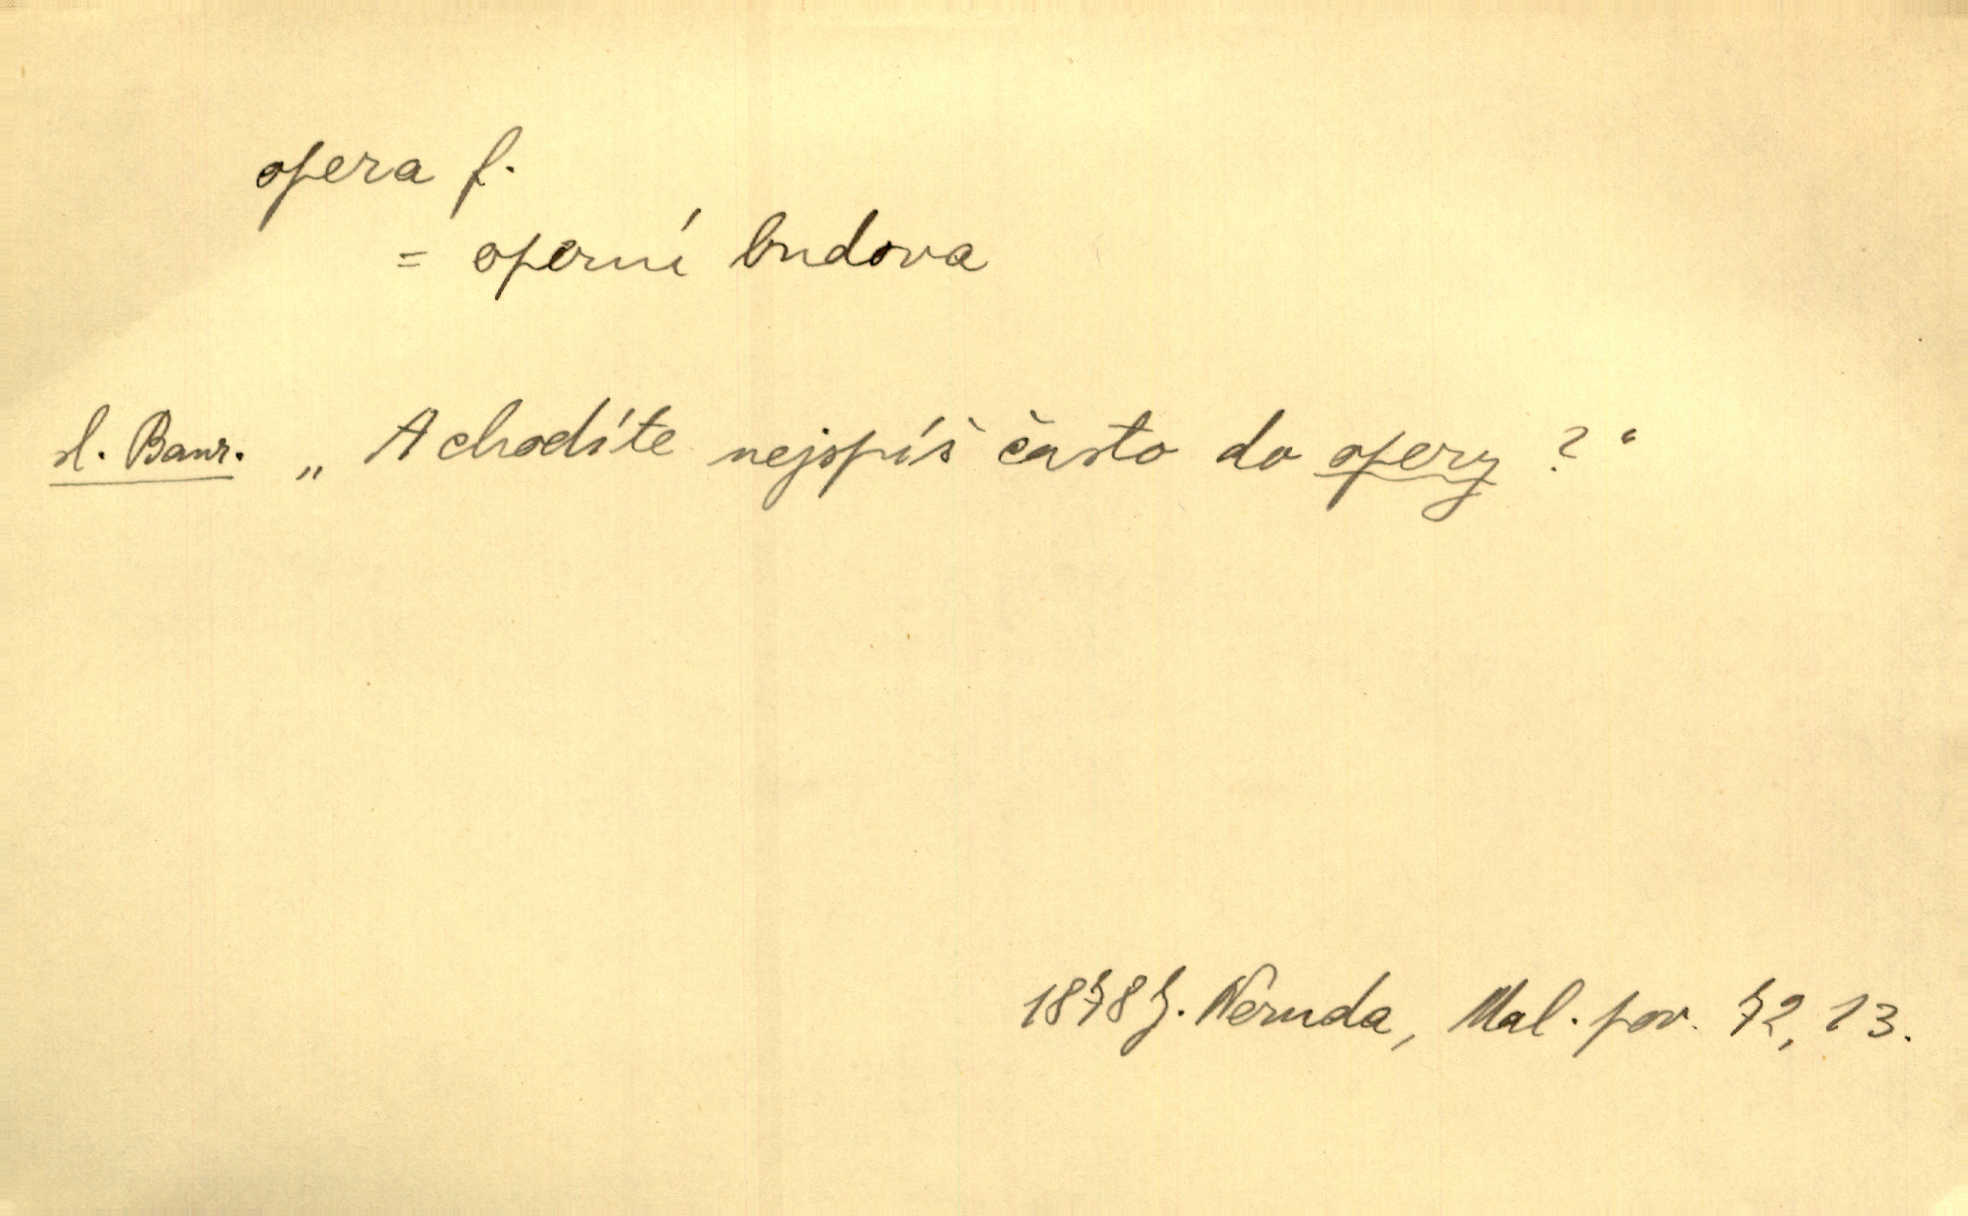 opera f.
= operní budova
sl. Baur. „A chodíte nejspíš často do opery?“
1878 J. Neruda, Mal. pov. 72, 13.